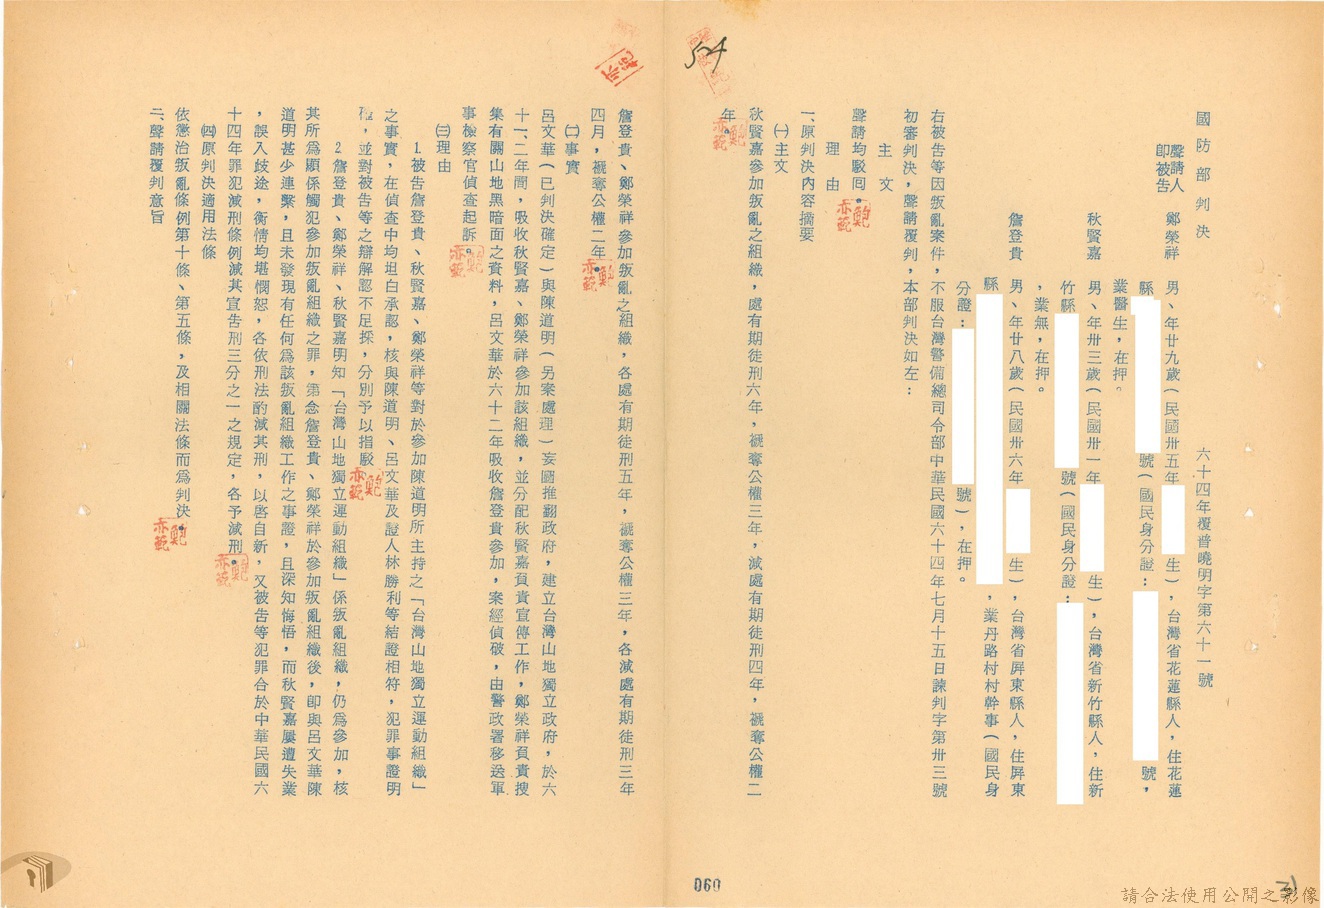 國防部判決
六十四年覆普曉明字第六十一號
聲請人
即被告
鄭榮祥 男、年廿九歲(民國卅五年 生),台灣省花蓮縣人,住花蓮
縣 號(國民身分證: 號,
業醫生,在押。
秋賢嘉 男、年卅三歲(民國卅一年 生),台灣省新竹縣人,住新
竹縣 號(國民身分證:
,業無,在押。
詹登貴 男、年廿八歲(民國卅六年 生),台灣省屏東縣人,住屏東
縣 ,業丹路村村幹事(國民身
分證: 號),在押。
右被告等因叛亂案件,不服台灣警備總司令部中華民國六十四年七月十五日諫判字第卅三號
初審判決,聲請覆判,本部判決如左:
主文
聲請均駁囘。
理由
一、原判決內容摘要
㈠主文
秋賢嘉參加叛亂之組織,處有期徒刑六年,褫奪公權三年,減處有期徒刑四年,褫奪公權二
年。
詹登貴、鄭榮祥參加叛亂之組織,各處有期徒刑五年,褫奪公權三年,各減處有期徒刑三年
四月,褫奪公權二年。
㈡事實
呂文華(已判決確定)與陳道明(另案處理)妄圖推翻政府,建立台灣山地獨立政府,於六
十一、二年間,吸收秋賢嘉、鄭榮祥參加該組織,並分配秋賢嘉負責宣傳工作,鄭榮祥負責搜
集有關山地黑暗面之資料,呂文華於六十二年吸收詹登貴參加,案經偵破,由警政署移送軍
事檢察官偵查起訴。
㈢理由
1.被告詹登貴、秋賢嘉、鄭榮祥等對於參加陳道明所主持之「台灣山地獨立運動組織」
之事實,在偵查中均坦白承認,核與陳道明、呂文華及證人林勝利等結證相符,犯罪事證明
確,並對被告等之辯解認不足採,分別予以指駁。
2.詹登貴、鄭榮祥、秋賢嘉明知「台灣山地獨立運動組織」係叛亂組織,仍爲參加,核
其所爲顯係觸犯參加叛亂組織之罪,第念詹登貴、鄭榮祥於參加叛亂組織後,卽與呂文華陳
道明甚少連繫,且未發現有任何爲該叛亂組織工作之事證,且深知悔悟,而秋賢嘉屢遭失業
,誤入歧途,衡情均堪憫恕,各依刑法酌減其刑,以啓自新,又被告等犯罪合於中華民國六
十四年罪犯減刑條例減其宣告刑三分之一之規定,各予減刑。
㈣原判決適用法條
依懲治叛亂條例第十條、第五條,及相關法條而爲判決。
二、聲請覆判意旨
060
請合法使用公開之影像